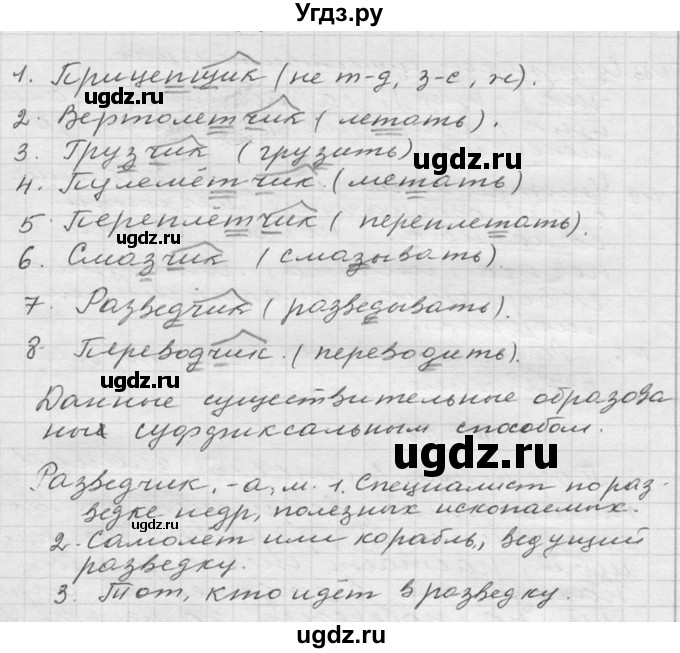 Угдз.ру
1. Прицепщик (не т-д, з-с, ж).
2. Вертолетчик (летать).
3. Грузчик (грузить)
4. Пулемётчик (метать)
5. Переплётчик (переплетать).
6. Смазчик (смазывать).
7. Разведчик (разведывать).
8. Переводчик. (переводить).
Данные существительные образова
ны суффиксальным способом.
Разведчик, -а, м. 1. Специалист по раз-
ведке недр, полезных ископаемых.
2. Самолёт или корабль, ведущий
разведку.
3. Тот, кто идёт в разведку.
ugdz.ru
ugdz.ru
ugdz.ru
ugdz.ru
ugdz.ru
ugdz.ru
ugdz.ru
ugdz.ru
ugdz.ru